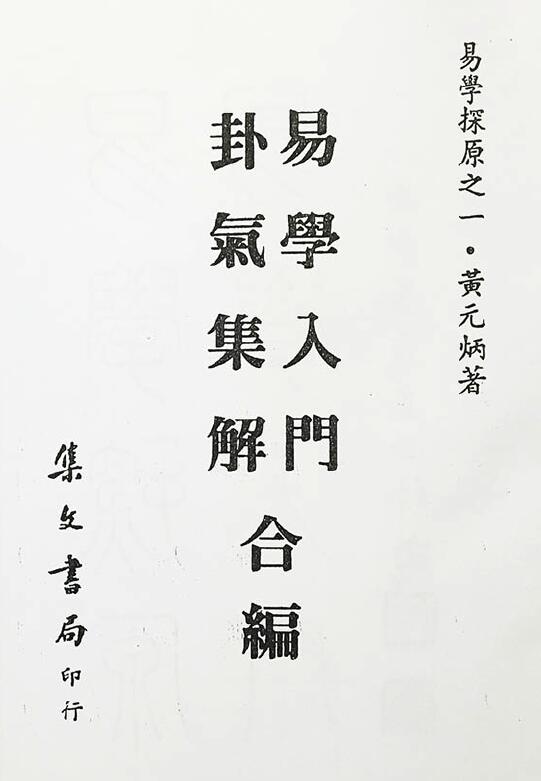 易學探原之一・黃元炳著
易學入門
卦氣集解
合編
集文書局印行